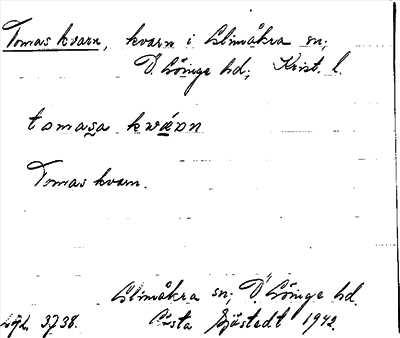 Tomas kvarn, kvarn i Glimåkra sn;
Ö. Göinge hd; Krist. l.
tomasa kwáən
Tomas kvarn.
Glimåkra sn; Ö. Göinge hd.
3738. Gösta Sjöstedt 1942.